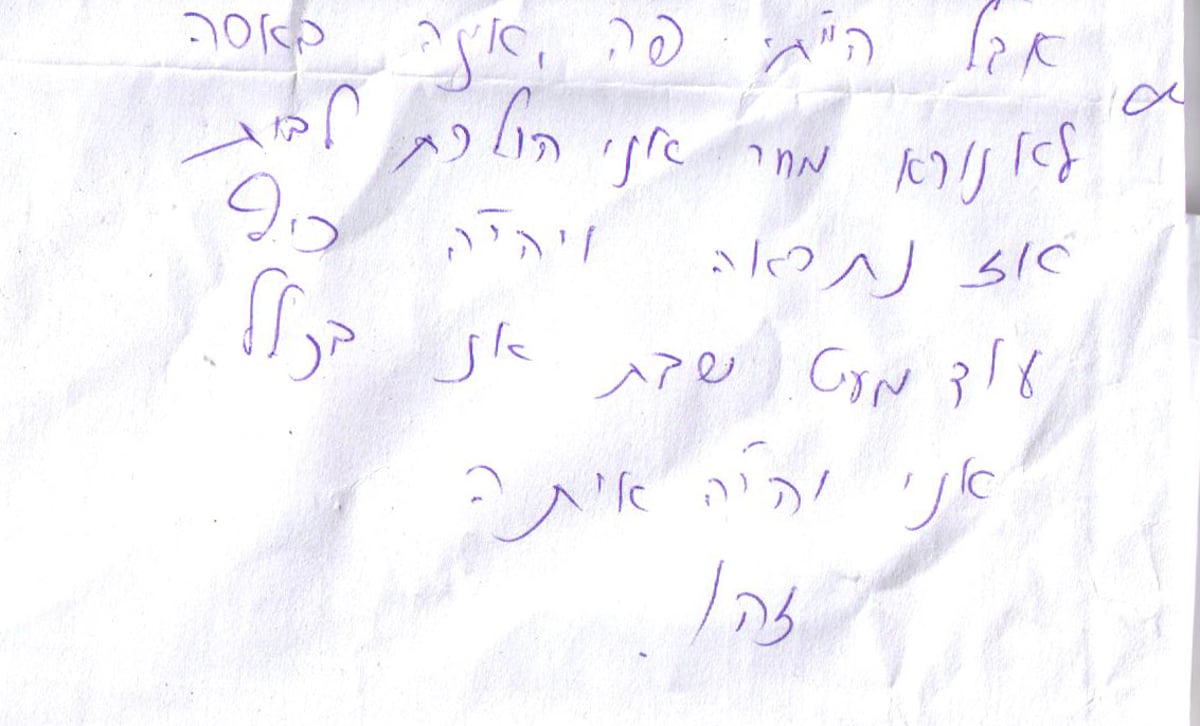 אבל הייתי פה, איזה באסה
לא נורא מחר אני הולכת לבית
אז נתראה ויהיה כיף
עוד מעט שבת אז בכלל
אני והיה איתה
זהו